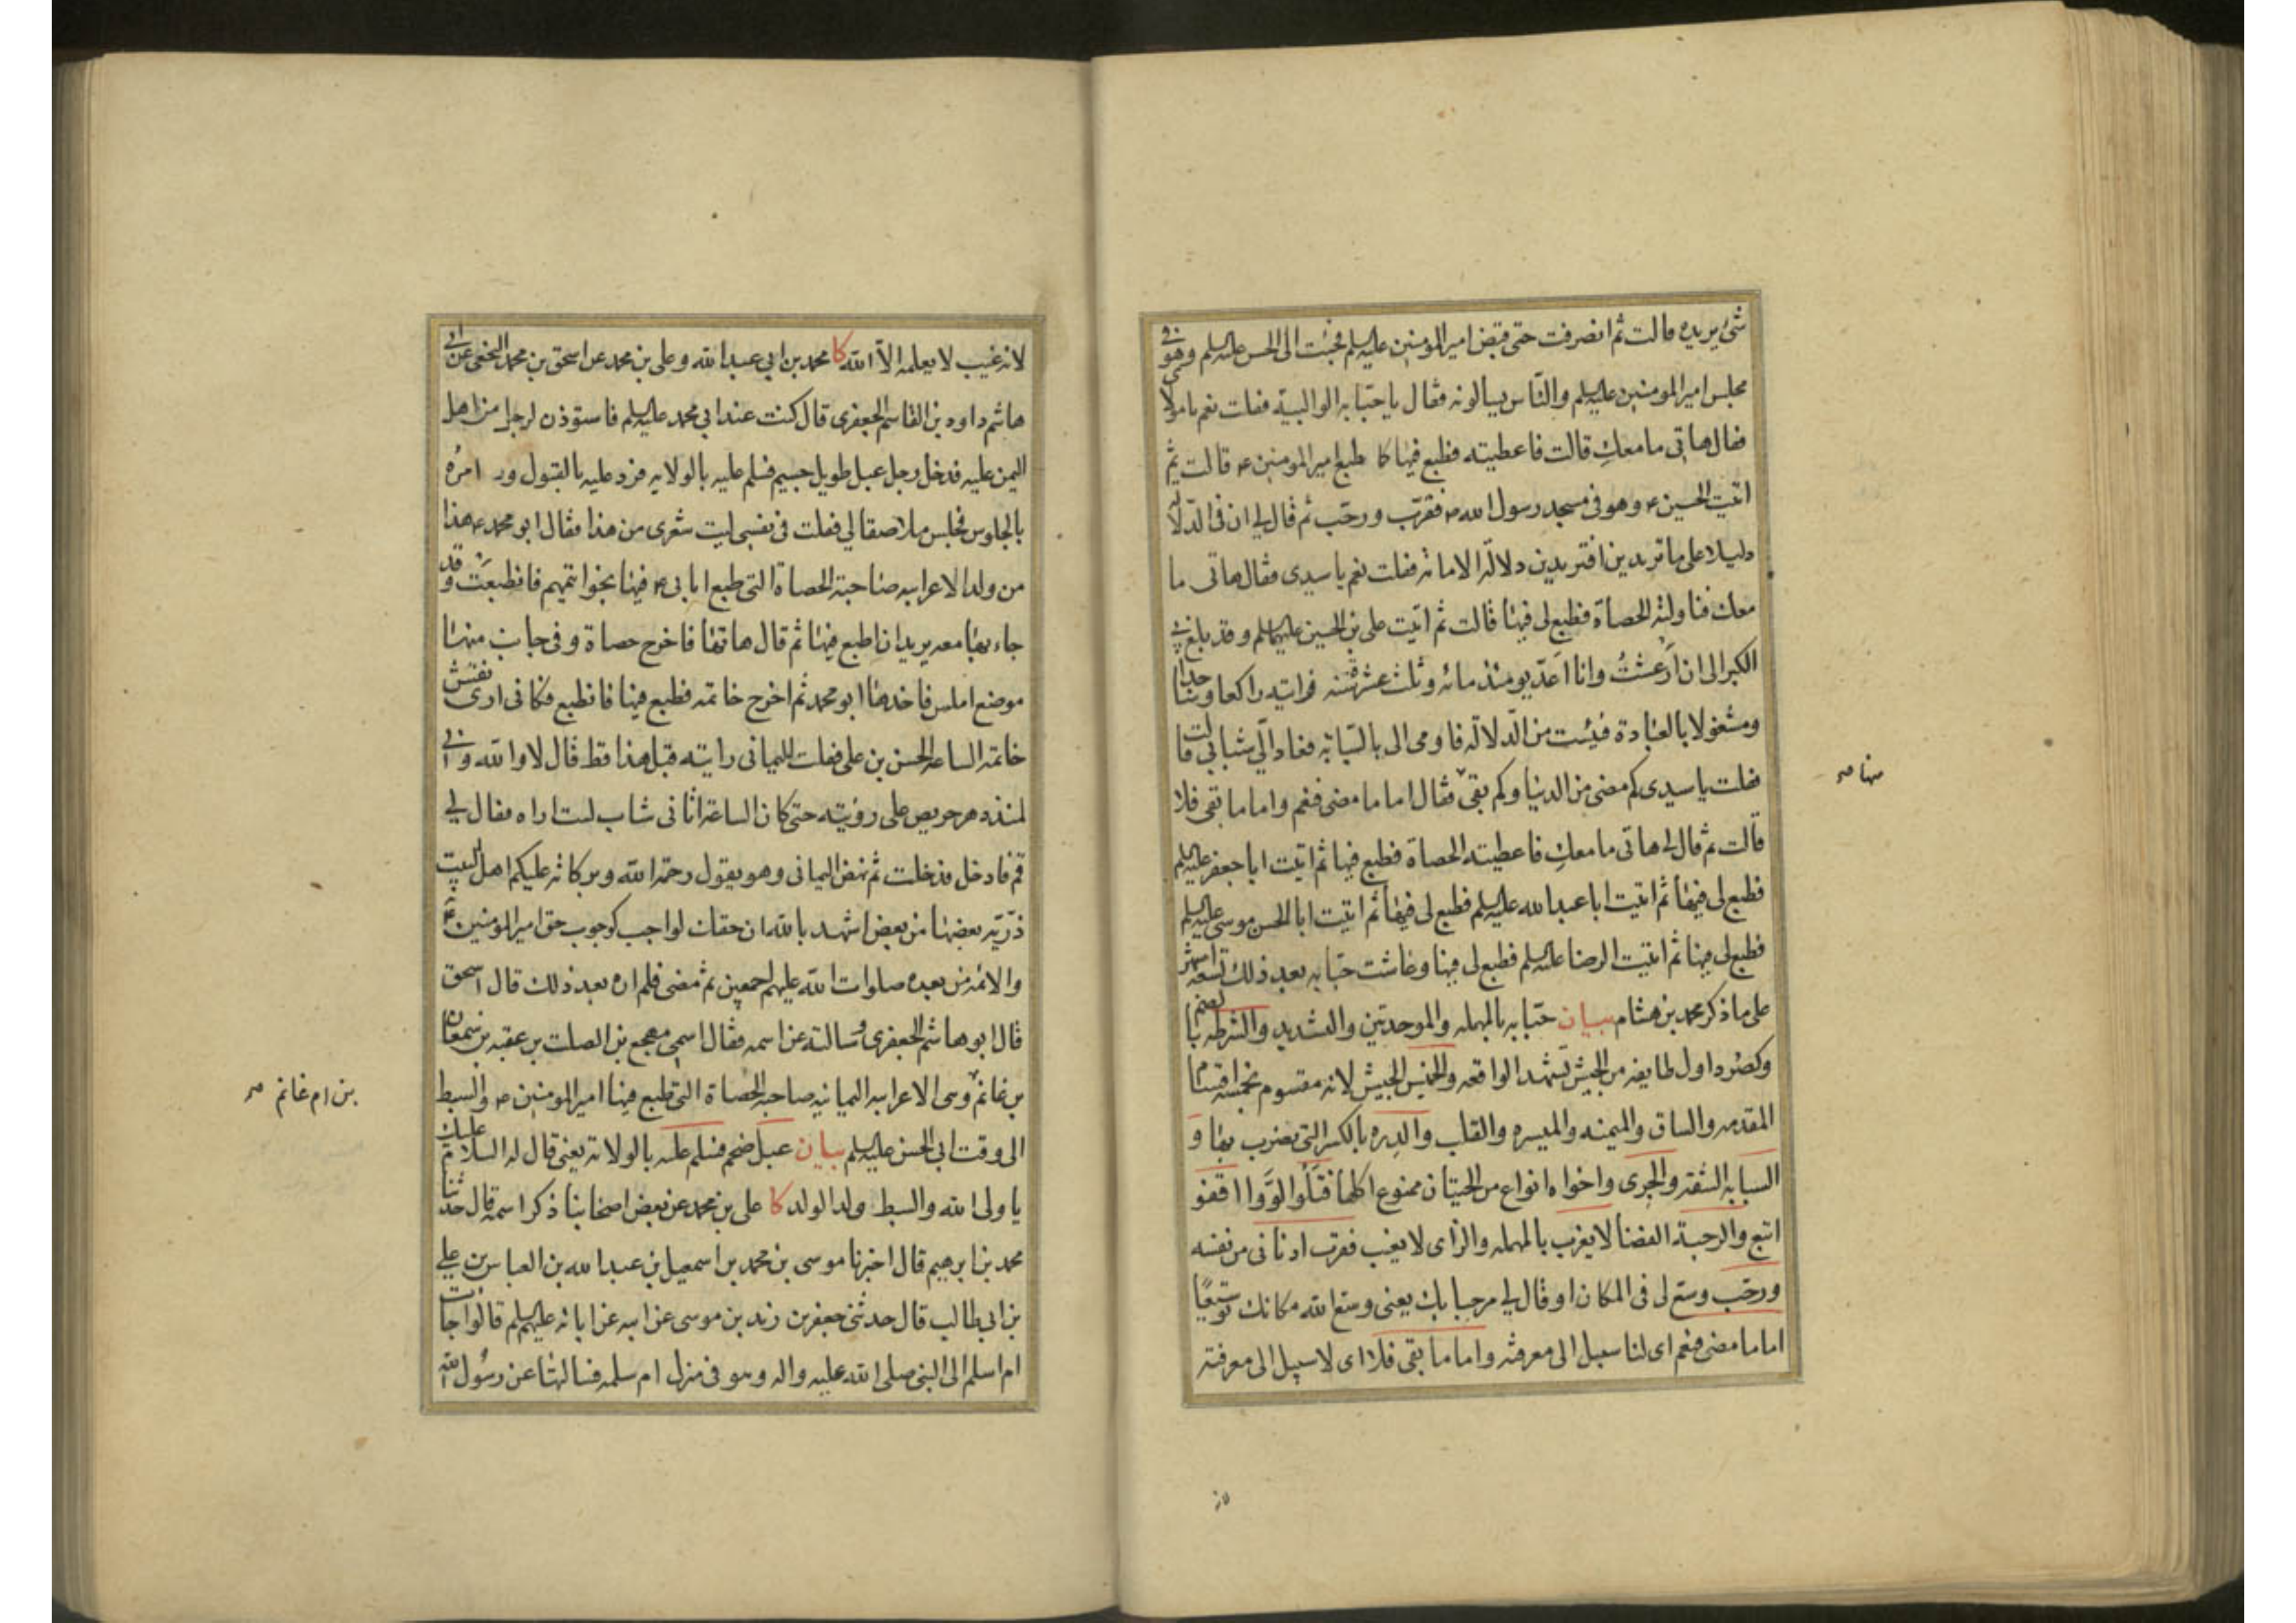 شئ يريده قالت ثم انصرفت حتى قبض امير المومنين عليه السلم فجئت الى الحسن عليه السلم وهو في
مجلس امير المومنين عليه السلم والناس يسالونه فقال يا حبّابه الوالبية فقلت نعم يا مولاى
فقال هاتى ما معكِ قالت فاعطيته فطبع فيها كا طبع امير المومنين ع قالت ثم
اتيت الحسين ع وهو فى مسجد رسول الله ص فقرّب ورحّب ثم قال لي ان فى الدّلالة
دليلا على ما تريدين افتريدين دلالة الامامة فقلت نعم يا سيدى فقال هاتى ما
معك فناولته الحصاة فطبع لى فيها قالت ثم اتيت على بن الحسين عليهما السلم وقد بلغ بي
الكبر الى ان اُرعشتُ وانا اَعدّ يومئذ مائة وثلث عشرة سنه فرايته راكعا وساجدا
ومشغولا بالعبادة فيئست من الدّلالة فاومى الى بالسّبّابة فعاد الّى شبابى قالت
فقلت يا سيدى كم مضى من الدنيا وكم بقى فقال اما ما مضى فنعم واما ما بقى فلا
قالت ثم قال لى هاتى ما معكِ فاعطيته الحصاة فطبع فيها ثم اتيت ابا جعفر عليه السلم
فطبع لى فيها ثم اتيت ابا عبد الله عليه السلم فطبع لى فيها ثم اتيت ابا الحسن موسى عليه السلم
فطبع لى فيها ثم اتيت الرضا عليه السلم فطبع لى فيها وعاشت حبّابه بعد ذلك تسعة اشهر
على ما ذكر محمد بن هشام بيان حبّابه بالمهمله والموحدتين والتشديد والشرطه بالضم
وكصُرد اول طايفه من الجيش تشهد الواقعه والخميس الجيش لانه مقسوم بخمسة اقسام
المقدمه والساق والميمنه والميسره والقلب والدره بالكسر التى يضرب بها و
السبابه الشقتر والجرى واخواه انواع من الحيتان ممنوع اكلها فتَلُوا لوَّوا اقفو
اتبع والرحبة الفضا لا يعزب بالمهمله والزاى لا يغيب فقرب ادنانى من نفسه
ورحّب وسّع لى فى المكان او قال لي مرحبا بك يعنى وسع الله مكانك توسيعًا
اما ما مضى فنعم اى لنا سبيل الى معرفته واما ما بقى فلا اى لا سبيل الى معرفته
منها صح
لانه غيب لا يعلمه الاّ الله كا محمد بن ابي عبد الله وعلى بن محمد عن اسحق بن محمد النخعى عن ابي
هاشم داود بن القاسم الجعفرى قال كنت عند ابي محمد عليه السلم فاستوذن لرجل من اهل
اليمن عليه فدخل رجل عبل طويل جسيم فسلم عليه بالولايه فرد عليه بالقبول و امره
بالجلوس فجلس ملاصقا لي فقلت فى نفسى ليت شعرى من هذا فقال ابو محمد ع هذا
من ولد الاعرابيه صاحبة الحصاة التى طبع اباىى ع فيها بخواتيمهم فانطبعَت وقد
جاء بها معه يريد ان اطبع فيها ثم قال هاتها فاخرج حصاة وفى جانب منها
موضع املس فاخذها ابو محمد ثم اخرج خاتمه فطبع فيها فانطبع فكانى ارى نقش
خاتمه الساعه الحسن بن على فقلت لليمانى رايته قبل هذا قط قال لا والله وانى
لمنذ دهر حريص على رؤيته حتى كان الساعة اتانى شاب لست اراه فقال لي
قم فادخل فدخلت ثم نهض اليمانى وهو يقول رحمة الله وبركاته عليكم اهل البيت
ذرّيّه بعضها من بعض اشهد بالله ان حقك لواجب كوجوب حق امير المومنين ع
والائمه من بعده صلوات الله عليهم اجمعين ثم مضى فلم اره بعد ذلك قال اسحق
قال ابو هاشم الجعفرى وسالته عن اسمه فقال اسمى مهجع بن الصلت بن عقبه بن سمعان
بن غانم وهى الاعرابيه اليمانيه صاحبة الحصاة التى طبع فيها امير المومنين ع والسبط
الى وقت ابى الحسن عليه السلم بيان عبل ضخم فسلم عليه بالولاية يعنى قال له السلام عليك
يا ولى الله والسبط ولد الولد كا على بن محمد عن بعض اصحابنا ذكر اسمه قال حدثنا
محمد بن ابرهيم قال اخبرنا موسى بن محمد بن اسمعيل بن عبد الله بن العباس بن علي
بن ابى طالب قال حدثنى جعفر بن زيد بن موسى عن ابيه عن ابائه عليهم السلم قالوا جاءت
ام اسلم الى النبى صلى الله عليه واله وهو فى منزل ام سلمه فسالتها عن رسول الله
بن ام غانم صح